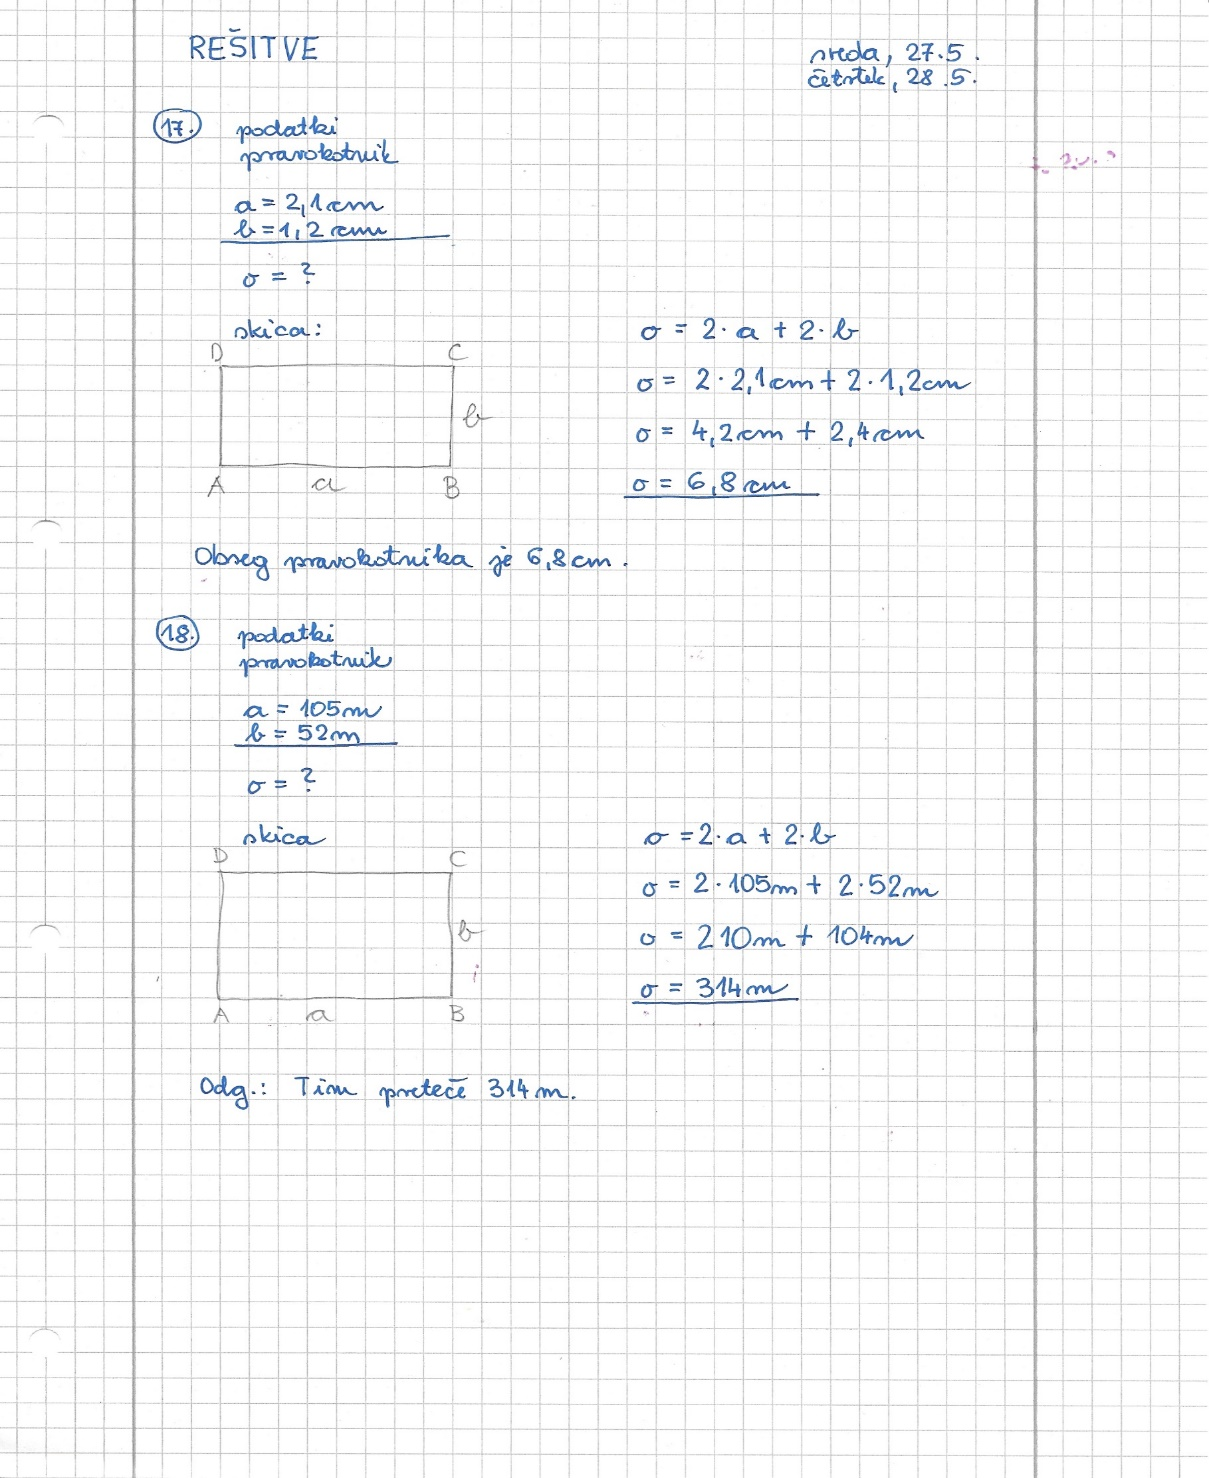 REŠITVE
sreda, 27.5.
četrtek, 28.5.
17.
podatki
pravokotnik
a = 2,1cm
b = 1,2 cm
o = ?
skica:
D C
b
A a B
o = 2·a + 2·b
o = 2·2,1cm + 2·1,2cm
o = 4,2cm + 2,4cm
o = 6,8cm
Obseg pravokotnika je 6,8cm.
18.
podatki
pravokotnik
a = 105m
b = 52m
o = ?
skica
D C
b
A a B
o = 2·a + 2·b
o = 2·105m + 2·52m
o = 210m + 104m
o = 314m
Odg.: Tim preteče 314m.